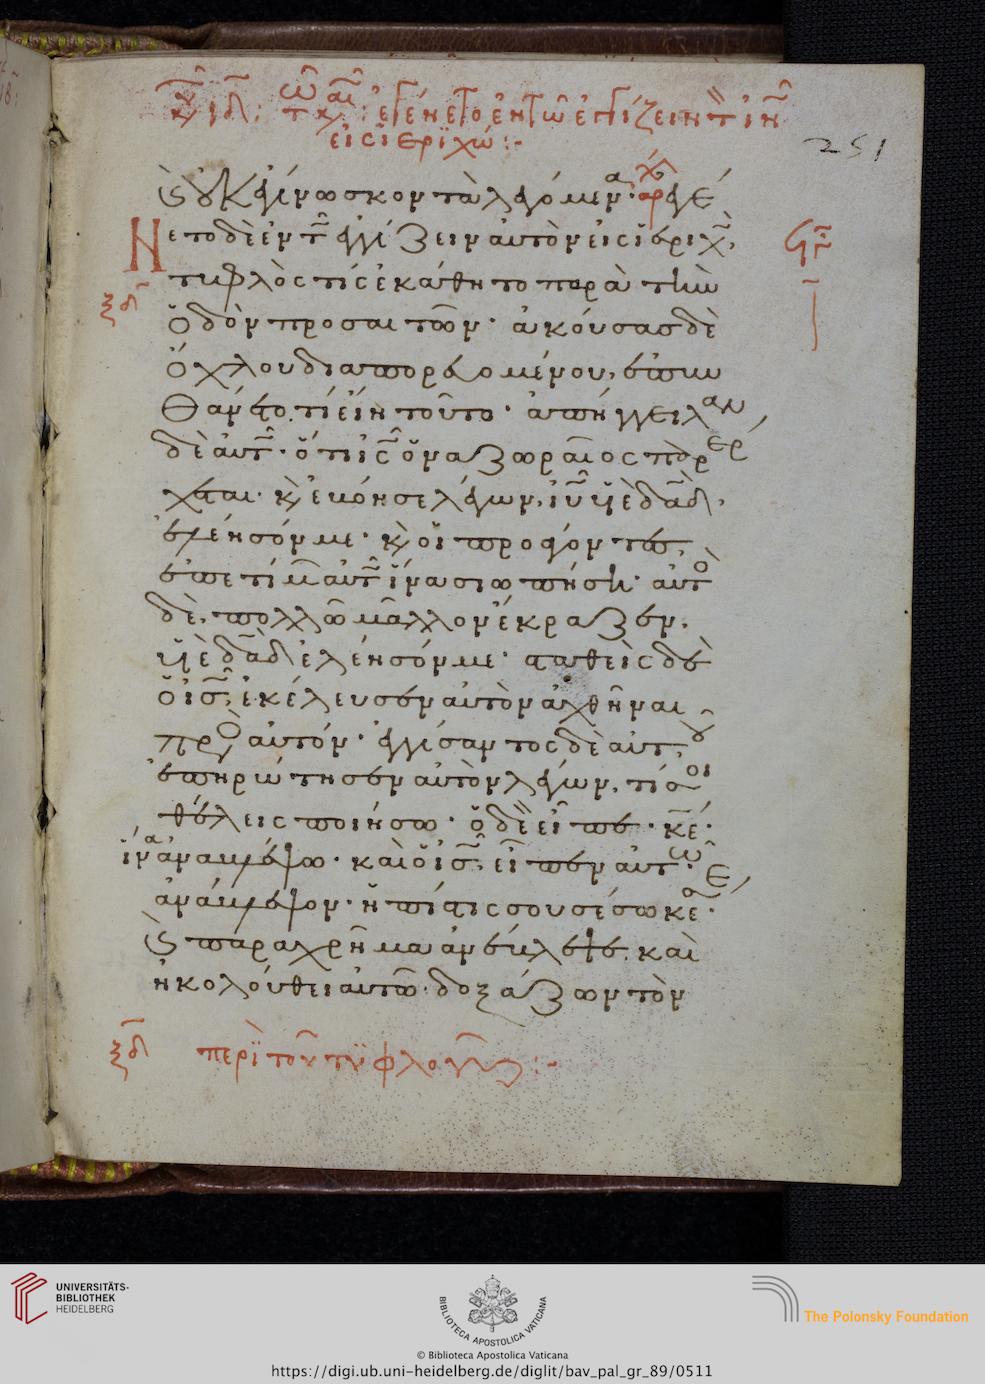 κυ ιδ: τω καιρ ἐγένετο ἐν τῶ ἐγγίζειν τ ιν
εἰς ἱεριχώ:-
251
κ οὐκ ἐγίνωσκον τὰ λεγόμενα· αρχ ἐγέ
Νετο δὲ ἐν τῶ ἐγγίζειν αὐτὸν εἰς ἱεριχ,
τυφλὸς τίς ἐκάθητο παρὰ τὴν
ξδ
ὁδὸν προσαιτῶν· ἀκούσας δὲ
ὄχλου διαπορευομένου, ἐπυν
θάνετο τί εἴη τοῦτο· ἀπήγγειλαν
δὲ αὐτ· ὅτι ις ὁ ναζωραῖος παρέρ
χεται· κ ἐβόησε λέγων, ιυ υἱὲ δαδ,
ἐλέησόν με· κ οἱ προάγοντες,
ἐπετίμ αὐτ ἵνα σιωπήση· αὐτὸ
δὲ, πολλῶ μᾶλλον ἔκραζεν,
υἱὲ δαδ ἐλέησόν με· σταθεὶς δὲ
ὁ ις, ἐκέλευσεν αὐτὸν ἀχθῆναι
πρὸ αὐτόν· ἐγγίσαντος δὲ αὐτοῦ
ἐπηρώτησεν αὐτὸν λέγων, τί σοι
θέλεις ποιήσω· ὁ δὲ εἶπε· κε·
ἵνα ἀναβλέψω· καὶ ὁ ις, εἶπεν αὐτῶ·
ἀνάβλεψον· ἡ πίστις σου σέσωκέ σε·
κ παραχρῆμα ἀνέβλεψε, καὶ
ἠκολούθει αὐτῶ δοξάζων τὸν
ξδ περὶ τοῦ τυφλοῦ:-
UNIVERSITÄTS-
BIBLIOTHEK
HEIDELBERG
BIBLIOTECA APOSTOLICA VATICANA
The Polonsky Foundation
© Biblioteca Apostolica Vaticana
https://digi.ub.uni-heidelberg.de/diglit/bav_pal_gr_89/0511